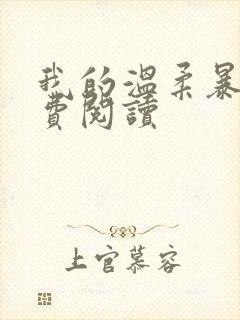 我的溫柔暴
費閱讀
上官慕容